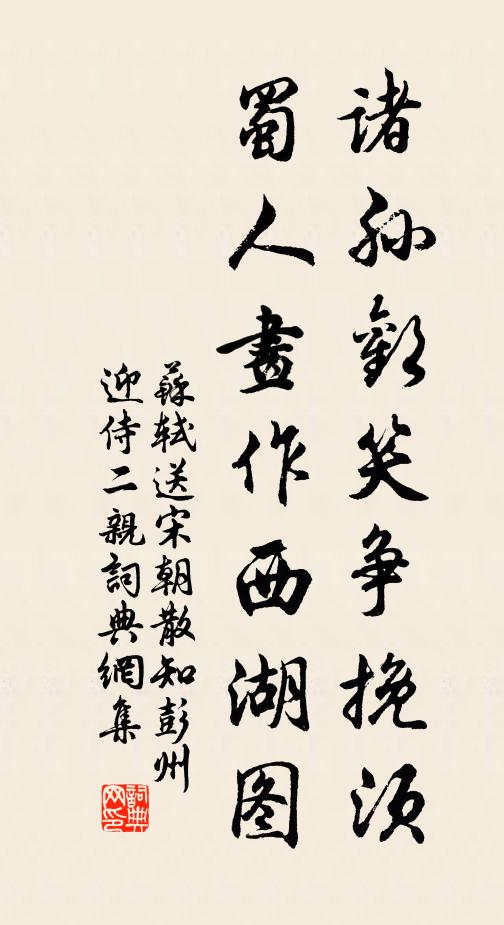 诸孫歡笑争挽须
蜀人畫作西湖图
蘇軾送宋朝散知彭州
迎侍二親詞典網集
詞典
网印